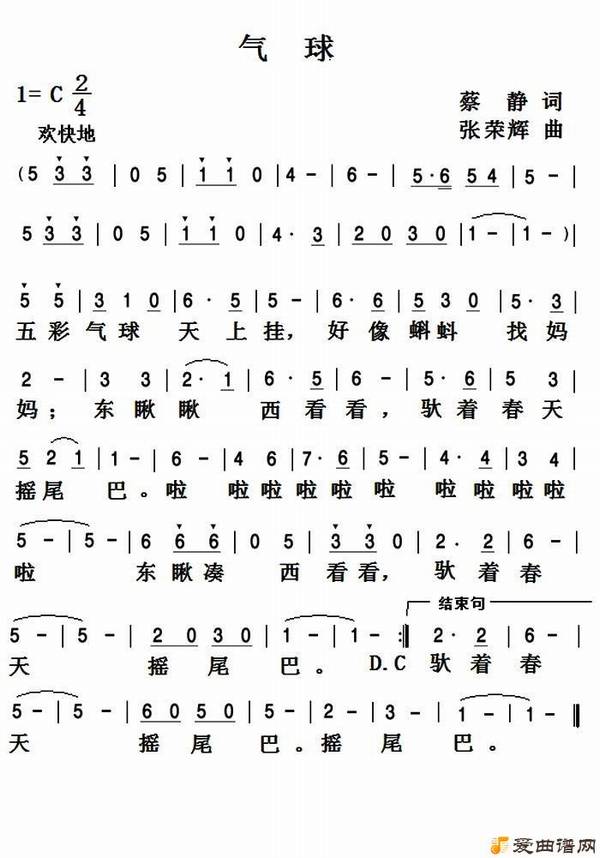 气 球
1= C 2/4
蔡 静 词
欢快地
张荣辉 曲
(5 3 3 | 0 5 | 1 1 0 | 4 - | 6 - | 5·6 5 4 | 5 - |
5 3 3 | 0 5 | 1 1 0 | 4· 3 | 2 0 3 0 | 1 - | 1 - )|
5 5 | 3 1 0 | 6· 5 | 5 - | 6· 6 | 5 3 0 | 5· 3 |
五 彩 气 球 天 上 挂, 好 像 蝌 蚪 找 妈
2 - | 3 3 | 2· 1 | 6· 5 | 6 - | 6· 6 | 5 3 |
妈; 东 瞅 瞅 西 看 看, 驮 着 春 天
5 2 1 | 1 - | 6 - | 4 6 | 7· 6 | 5 - | 4· 4 | 3 4 |
摇 尾 巴。啦 啦 啦 啦 啦 啦 啦 啦 啦 啦
5 - | 5 - | 6 6 6 | 0 5 | 3 3 0 | 2· 2 | 6 - |
啦 东 瞅 凑 西 看 看, 驮 着 春
5 - | 5 - | 2 0 3 0 | 1 - | 1 - :| 结束句 2· 2 | 6 - |
天 摇 尾 巴。 D.C 驮 着 春
5 - | 5 - | 6 0 5 0 | 5 - | 2 - | 3 - | 1 - | 1 - ||
天 摇 尾 巴。摇 尾 巴。
爱曲谱网